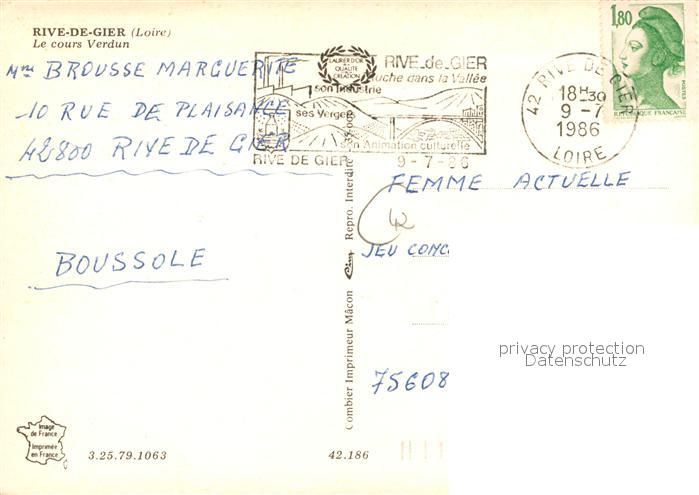 RIVE-DE-GIER (Loire)
Le cours Verdun
Mme BROUSSE MARGUERITE
10 RUE DE PLAISANCE
42800 RIVE DE GIER
BOUSSOLE
LAURIER D'OR
DE LA
QUALITÉ
CRÉATION
RIVE-de-GIER
uche dans la Vallée
son Industrie
ses Vergers
son Animation culturelle
RIVE DE GIER
9-7-86
42 RIVE DE GIER
18H30
9-7
1986
LOIRE
1,80
POSTES
REPUBLIQUE FRANÇAISE
FEMME ACTUELLE
JEU CONC
75608
privacy protection
Datenschutz
Combier Imprimeur Mâcon Cim Repro. Interdite
Image
de France
Imprimée
en France
3.25.79.1063
42.186